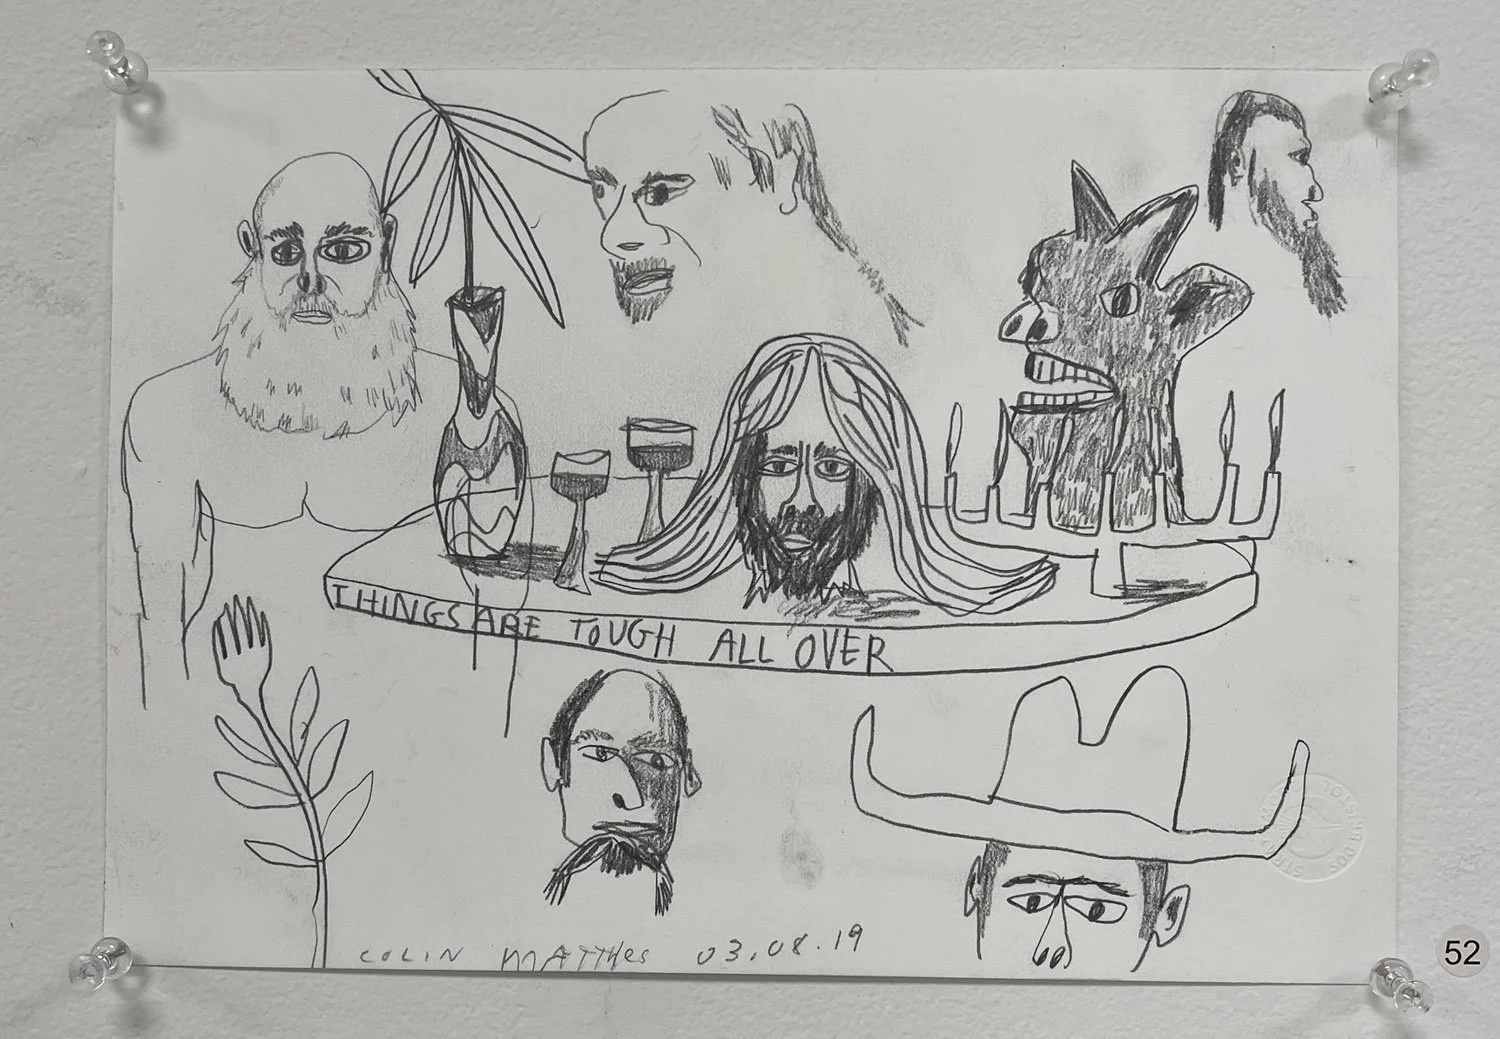 THINGS ARE TOUGH ALL OVER
COLIN MATTHES 03.08.19
52